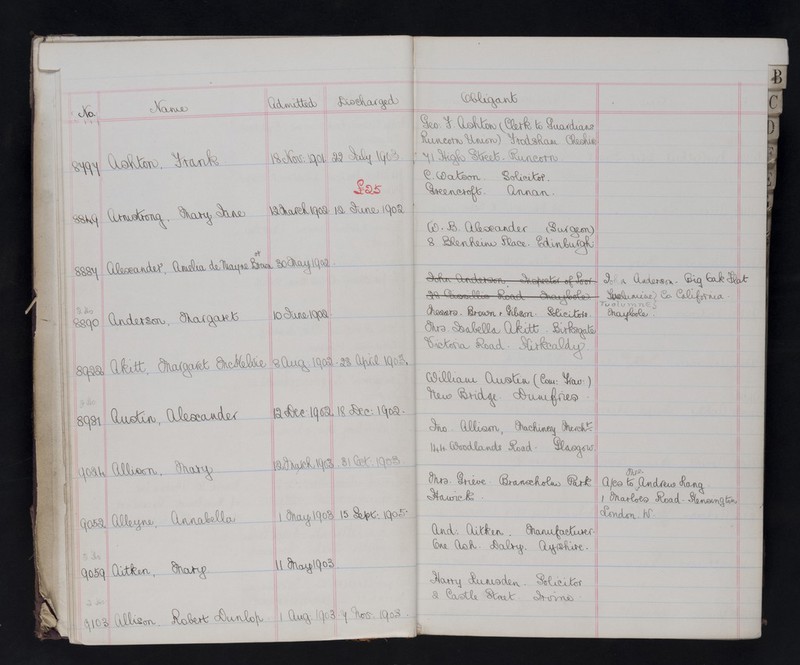 No. Name Admitted Discharged Obligant
8797 Ashton, Frank 18 Nov: 1901 22 July 1903 Geo. F. Ashton (Clerk to Guardians
Runcorn Union) Frodsham Cheshire
71 High Street. Runcorn
£25
8849 Armstrong, Mary Jane 12 March 1902 12 June 1902 C. Watson Solicitor.
Greencroft. Annan.
8884 Alexander, Amelia de Mayne 30 May 1902 W. B. Alexander (Surgeon)
8 Blenheim Place. Edinburgh
8890 Anderson, Margaret 10 June 1902 John Anderson, Inspector of Poor
Road Maybole
Messrs. Brown & Gibson Solicitors Maybole.
John Anderson. Big Oak Flat
Co California
TUOLUMNE
8928 Akitt, Margaret McKelvie 8 Aug. 1902 28 April 1903. Mrs. Isabella Akitt. Birksgate
Victoria Road. Kirkcaldy
8981 Austin, Alexander 12 Dec 1902 18 Dec: 1902. William Austin (Com: Trav:)
New Bridge Dumfries
9024 Allison, Mary 12 March 1903 31 Oct: 1903 Jno. Allison, Machinery Mercht:
144 Woodlands Road. Glasgow
9052 Alleyne, Annabella 1 May 1903 15 Sept: 1905 Mrs. Grieve Branxholm Park
Hawick.
Mrs
A/cs to Andrew Lang
1 Marloes Road Kensington
London W.
9059 Aitken, Mary 11 May 1903 And: Aitken. Manufacturer
One Ash. Dalry. Ayrshire.
9103 Allison, Robert Dunlop 1 Aug. 1903 7 Nov. 1903. Harry Lumsden. Solicitor
2 Castle Street Irvine
B
C
D
E